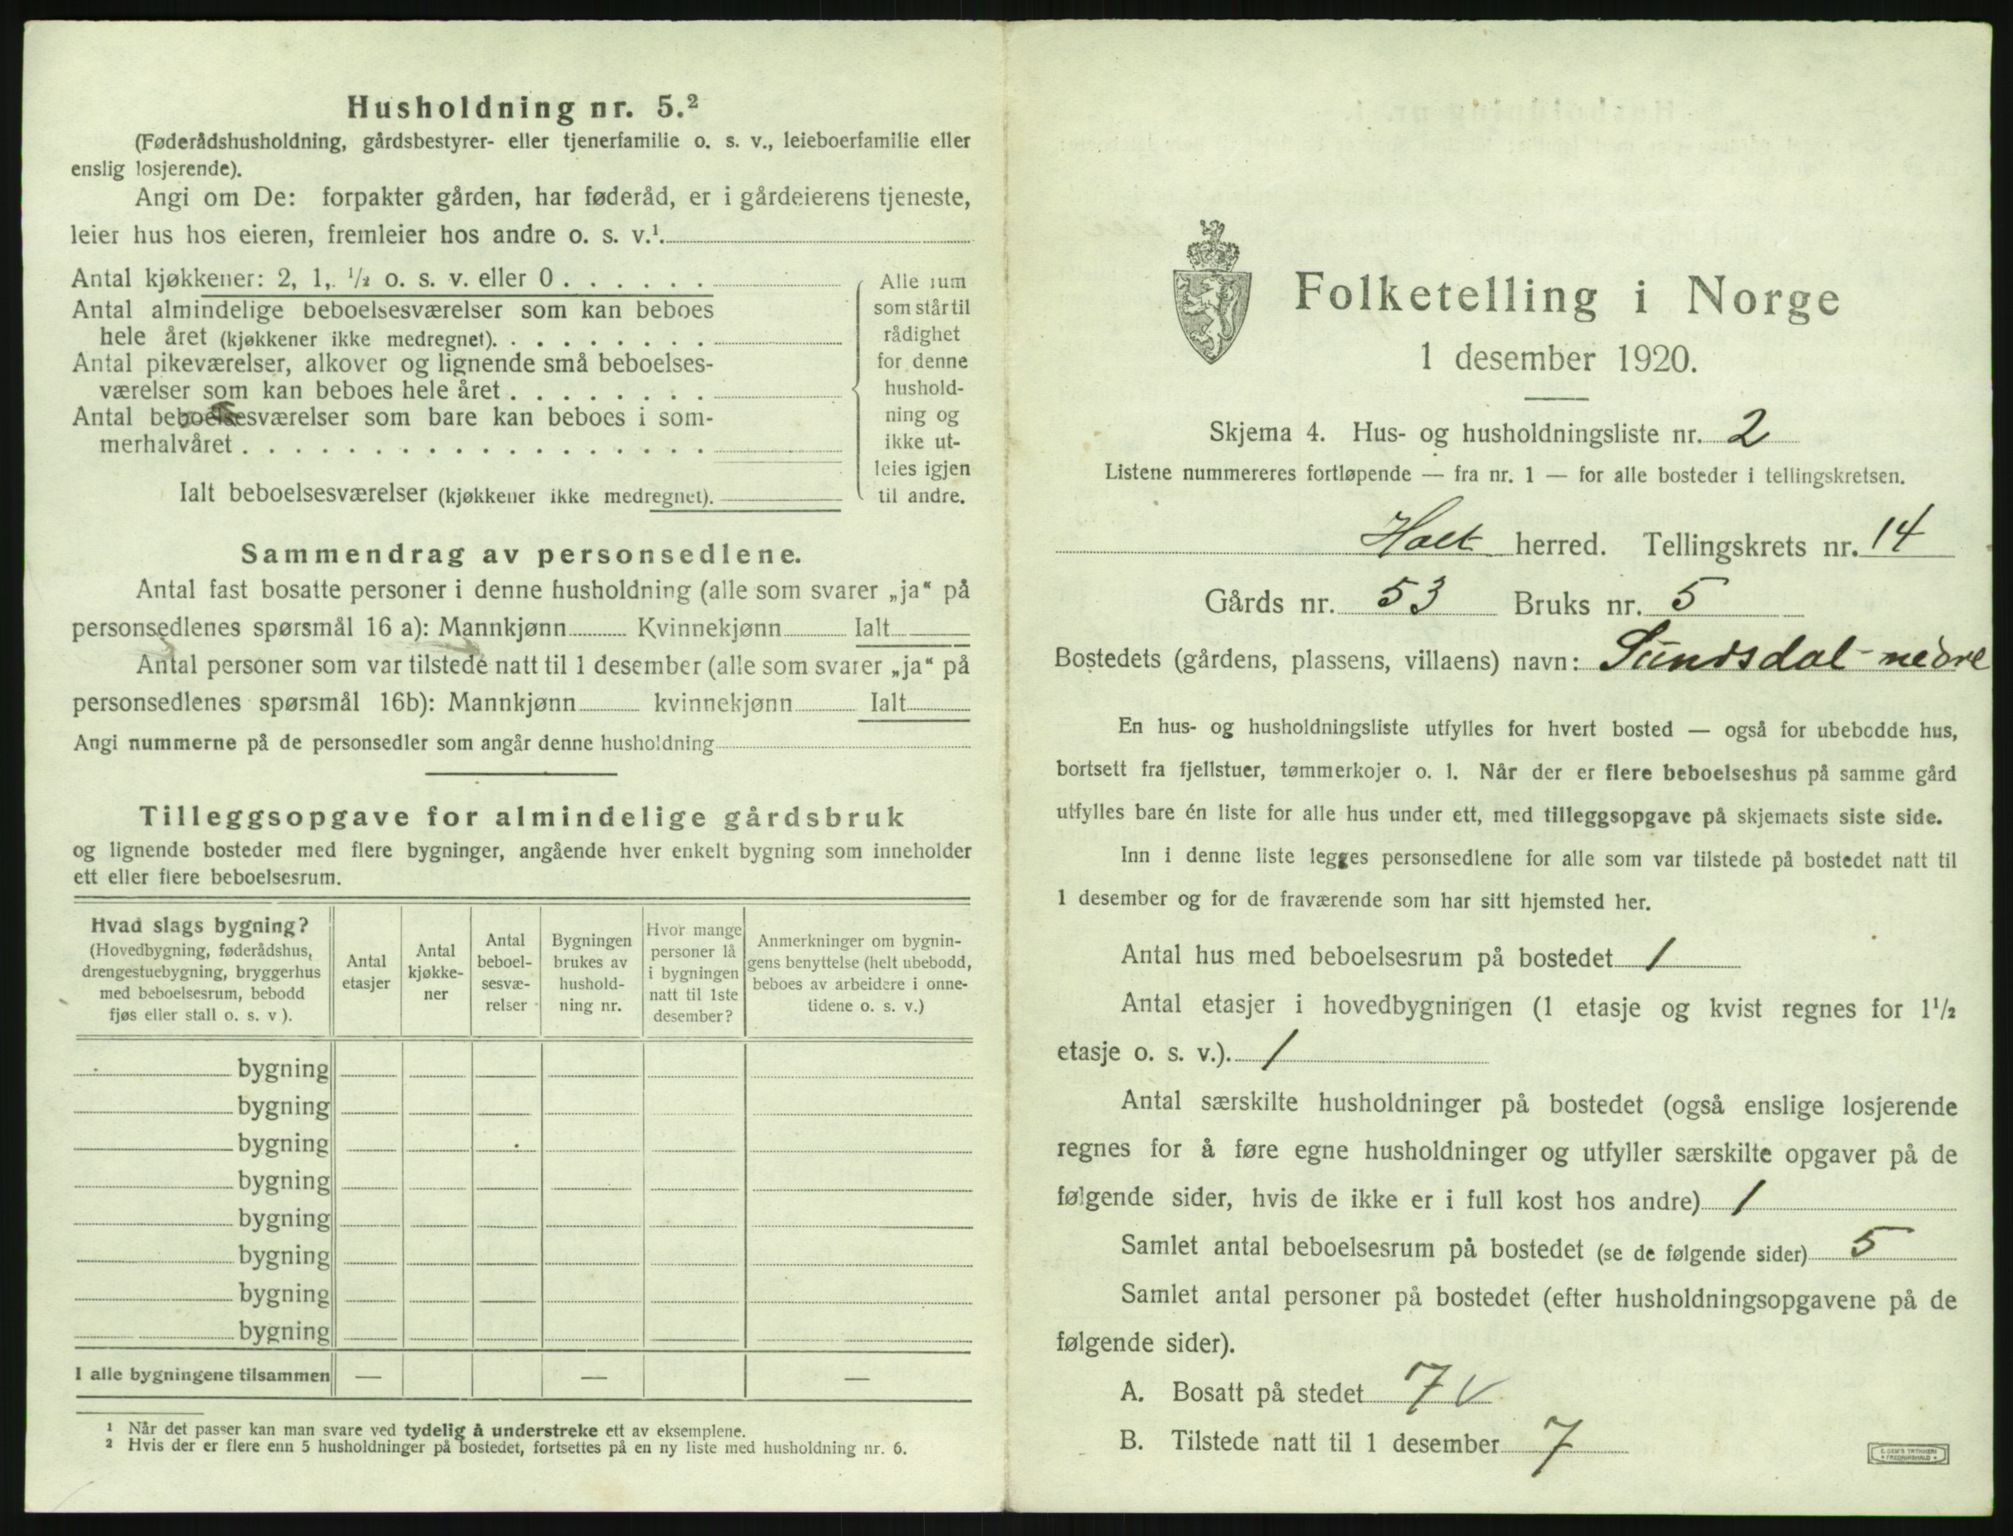 Husholdning nr. 5.²
(Føderådshusholdning, gårdsbestyrer- eller tjenerfamilie o. s. v., leieboerfamilie eller
enslig losjerende).
Angi om De: forpakter gården, har føderåd, er i gårdeierens tjeneste,
leier hus hos eieren, fremleier hos andre o. s. v.¹.
Antal kjøkkener: 2, 1, ½ o. s. v. eller 0 . . . . . .
Antal almindelige beboelsesværelser som kan beboes
hele året (kjøkkener ikke medregnet). . . . . . . . .
Antal pikeværelser, alkover og lignende små beboelses-
værelser som kan beboes hele året . . . . . . . .
Antal beboelsesværelser som bare kan beboes i som-
merhalvåret . . . . . . . . . . . . . . . . . .
Ialt beboelsesværelser (kjøkkener ikke medregnet).
Alle rum
som står til
rådighet
for denne
hushold-
ning og
ikke ut-
leies igjen
til andre.
Sammendrag av personsedlene.
Antal fast bosatte personer i denne husholdning (alle som svarer „ja“ på
personsedlenes spørsmål 16 a): Mannkjønn Kvinnekjønn Ialt
Antal personer som var tilstede natt til 1 desember (alle som svarer „ja“ på
personsedlenes spørsmål 16b): Mannkjønn kvinnekjønn Ialt
Angi nummerne på de personsedler som angår denne husholdning
Tilleggsopgave for almindelige gårdsbruk
og lignende bosteder med flere bygninger, angående hver enkelt bygning som inneholder
ett eller flere beboelsesrum.
Hvad slags bygning?
(Hovedbygning, føderådshus,
drengestuebygning, bryggerhus
med beboelsesrum, bebodd
fjøs eller stall o. s. v ).
Antal
etasjer
Antal
kjøkke-
ner
Antal
beboel-
sesvæ-
relser
Bygningen
brukes av
hushold-
ning nr.
Hvor mange
personer lå
i bygningen
natt til 1ste
desember?
Anmerkninger om bygnin-
gens benyttelse (helt ubebodd,
beboes av arbeidere i onne-
tidene o. s. v.)
bygning
bygning
bygning
bygning
bygning
bygning
bygning
bygning
I alle bygningene tilsammen — — —
¹ Når det passer kan man svare ved tydelig å understreke ett av eksemplene.
² Hvis der er flere enn 5 husholdninger på bostedet, fortsettes på en ny liste med husholdning nr. 6.
Folketelling i Norge
1 desember 1920.
Skjema 4. Hus- og husholdningsliste nr. 2
Listene nummereres fortløpende — fra nr. 1 — for alle bosteder i tellingskretsen.
Holt herred. Tellingskrets nr. 14
Gårds nr. 53 Bruks nr. 5
Bostedets (gårdens, plassens, villaens) navn: Sundsdal-nedre
En hus- og husholdningsliste utfylles for hvert bosted — også for ubebodde hus,
bortsett fra fjellstuer, tømmerkojer o. l. Når der er flere beboelseshus på samme gård
utfylles bare én liste for alle hus under ett, med tilleggsopgave på skjemaets siste side.
Inn i denne liste legges personsedlene for alle som var tilstede på bostedet natt til
1 desember og for de fraværende som har sitt hjemsted her.
Antal hus med beboelsesrum på bostedet 1
Antal etasjer i hovedbygningen (1 etasje og kvist regnes for 1½
etasje o. s. v.). 1
Antal særskilte husholdninger på bostedet (også enslige losjerende
regnes for å føre egne husholdninger og utfyller særskilte opgaver på de
følgende sider, hvis de ikke er i full kost hos andre) 1
Samlet antal beboelsesrum på bostedet (se de følgende sider) 5
Samlet antal personer på bostedet (efter husholdningsopgavene på de
følgende sider).
A. Bosatt på stedet 7 v
B. Tilstede natt til 1 desember 7